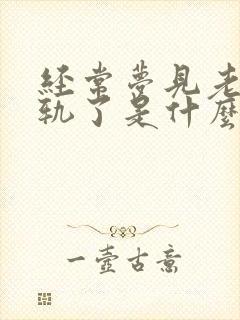 經常夢見老
軌了是什麼
一壺古意